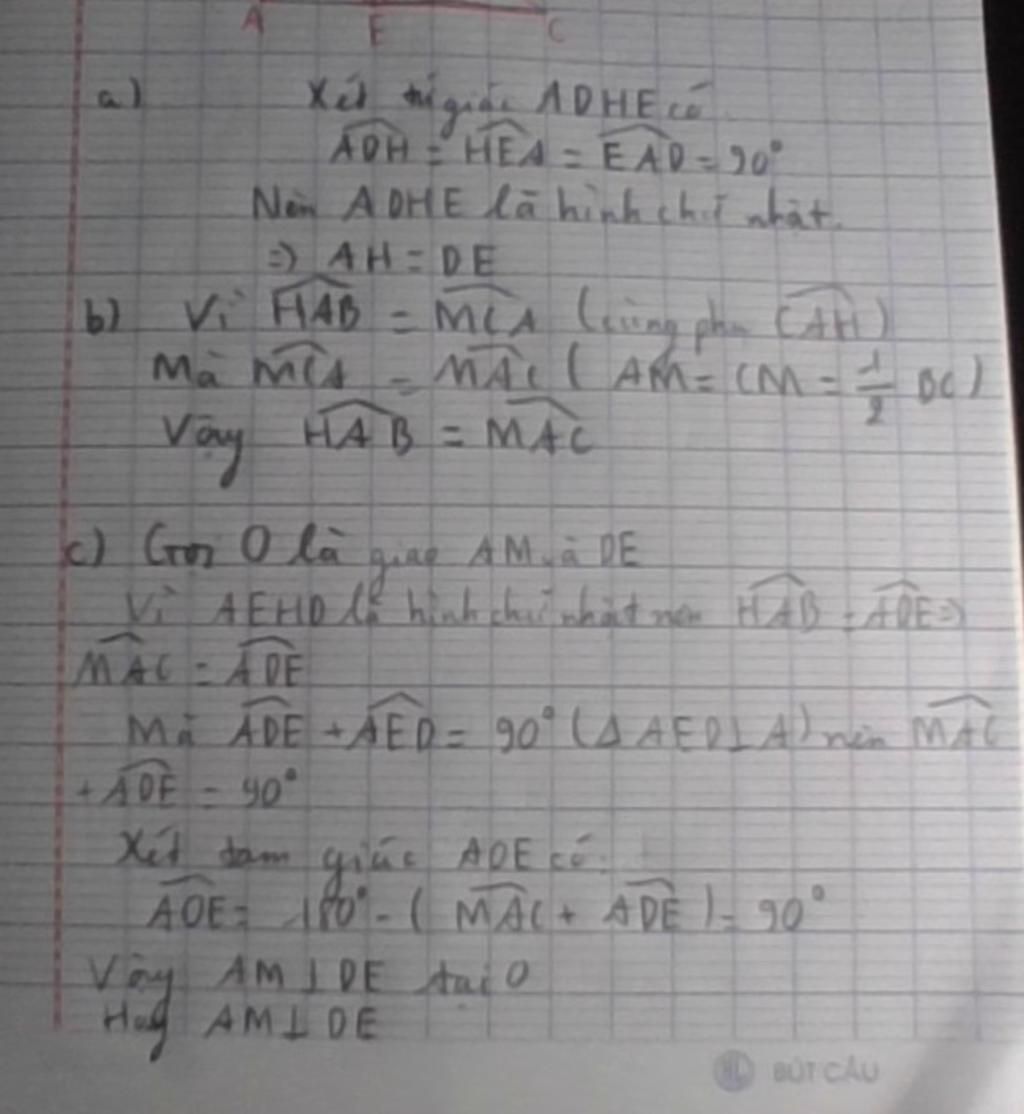 A E C
a) Xét tứ giác ADHE có
ADH = HEA = EAD = 90°
Nên ADHE là hình chữ nhật.
=> AH = DE
b) Vì HAB = MCA (cùng phụ CAH)
Mà MCA = MAC ( AM = CM = 1/2 BC)
Vậy HAB = MAC
c) Gọi O là giao AM và DE
Vì AEHD là hình chữ nhật nên HAB = ADE =>
MAC = ADE
Mà ADE + AED = 90° (Δ AED ⊥ A) nên MAC
+ ADE = 90°
Xét tam giác AOE có:
AOE = 180° - ( MAC + ADE ) = 90°
Vậy AM ⊥ DE tại O
Hay AM ⊥ DE
BÚT CÂU